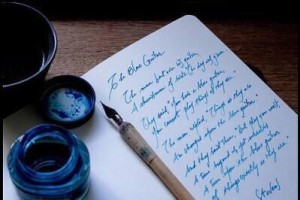 The man bent over his guitar,
A shearsman of sorts. The day was green.
They said, "You have a blue guitar,
You do not play things as they are."
The man replied, "Things as they are
Are changed upon the blue guitar."
And they said then, "But play, you must,
A tune beyond us, yet ourselves,
A tune upon the blue guitar
Of things exactly as they are."